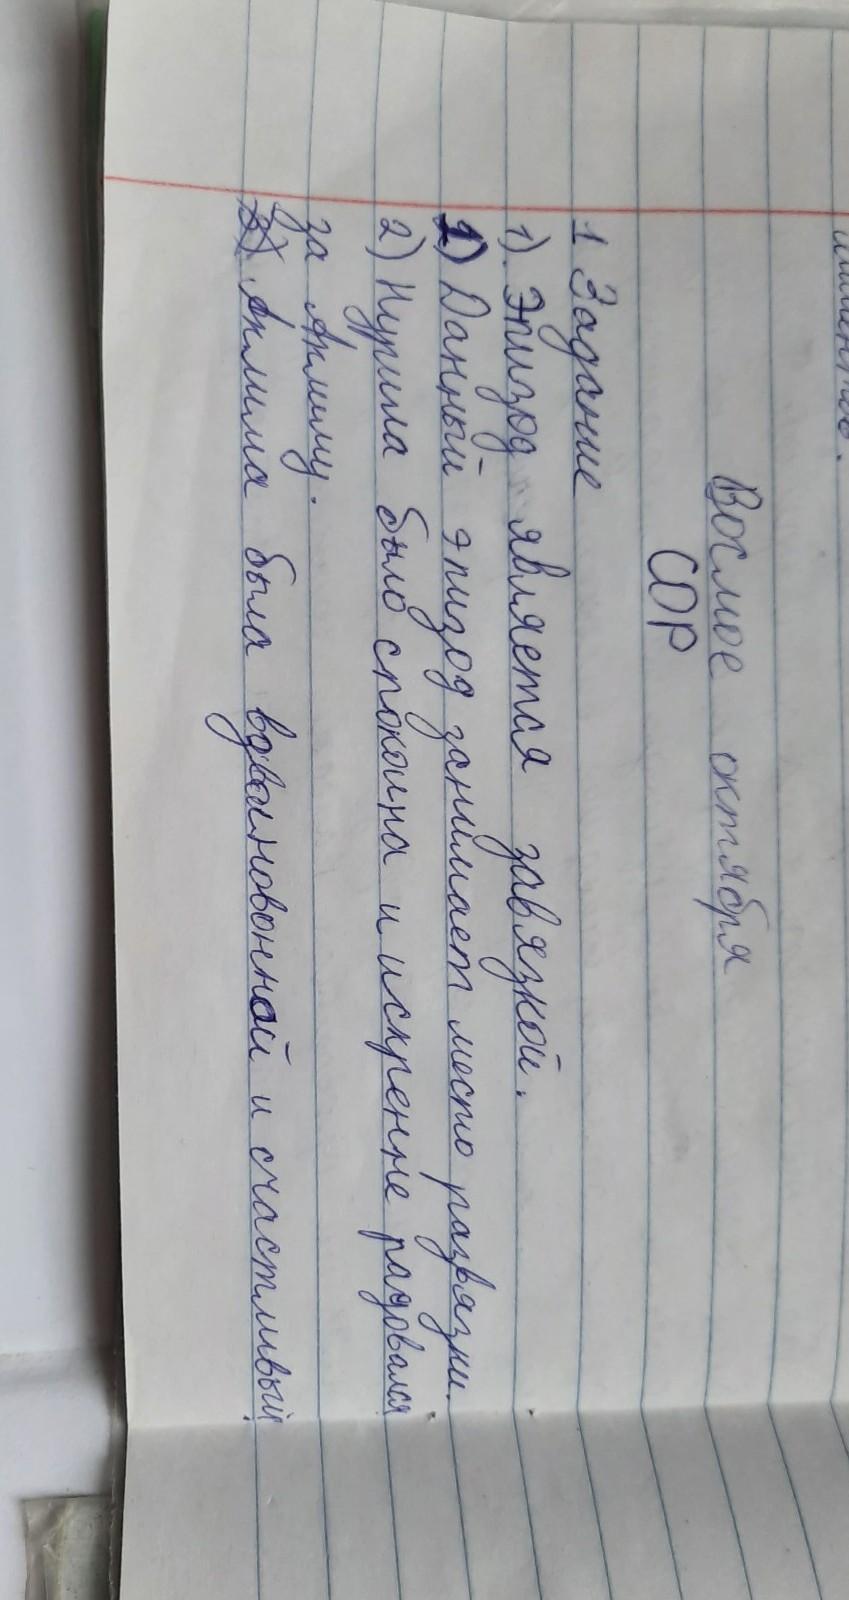 Восмое октября
СОР
1 Задание
1) Эпизод является завязкой.
1) Данный эпизод занимает место развязки.
2) Нурила было спокойна и искренне радовался
за Аклиму.
Аклима была и счастливый.